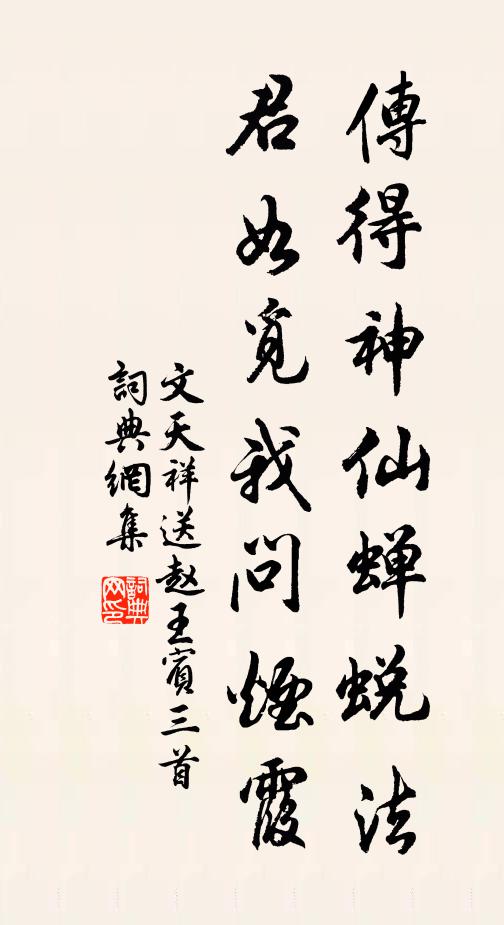 傳得神仙蝉蜕法
君如覓我問煙霞
文天祥送赵王賓三首
詞典網集
詞典
网印